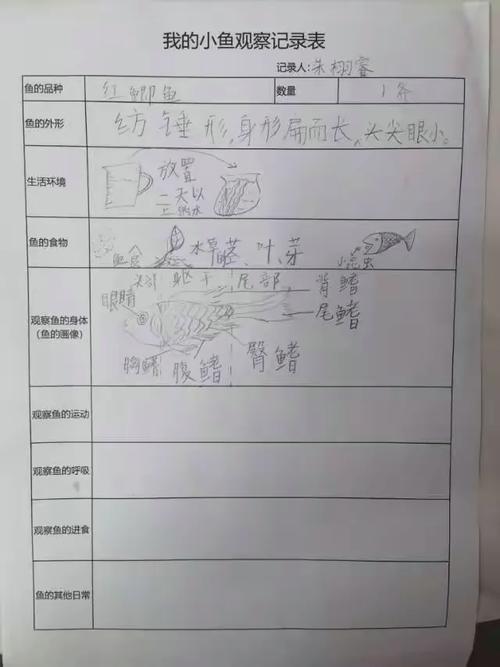 我的小鱼观察记录表
记录人：朱栩睿
鱼的品种 红鲫鱼 数量 1条
鱼的外形 纺锤形，身形扁而长，头尖眼小。
生活环境 放置
二天以
上的水
鱼的食物 鱼食 水草茎、叶、芽 小昆虫
头部 躯干 尾部 背鳍
眼睛 尾鳍
观察鱼的身体
（鱼的画像）
胸鳍 腹鳍 臀鳍
观察鱼的运动
观察鱼的呼吸
观察鱼的进食
鱼的其他日常